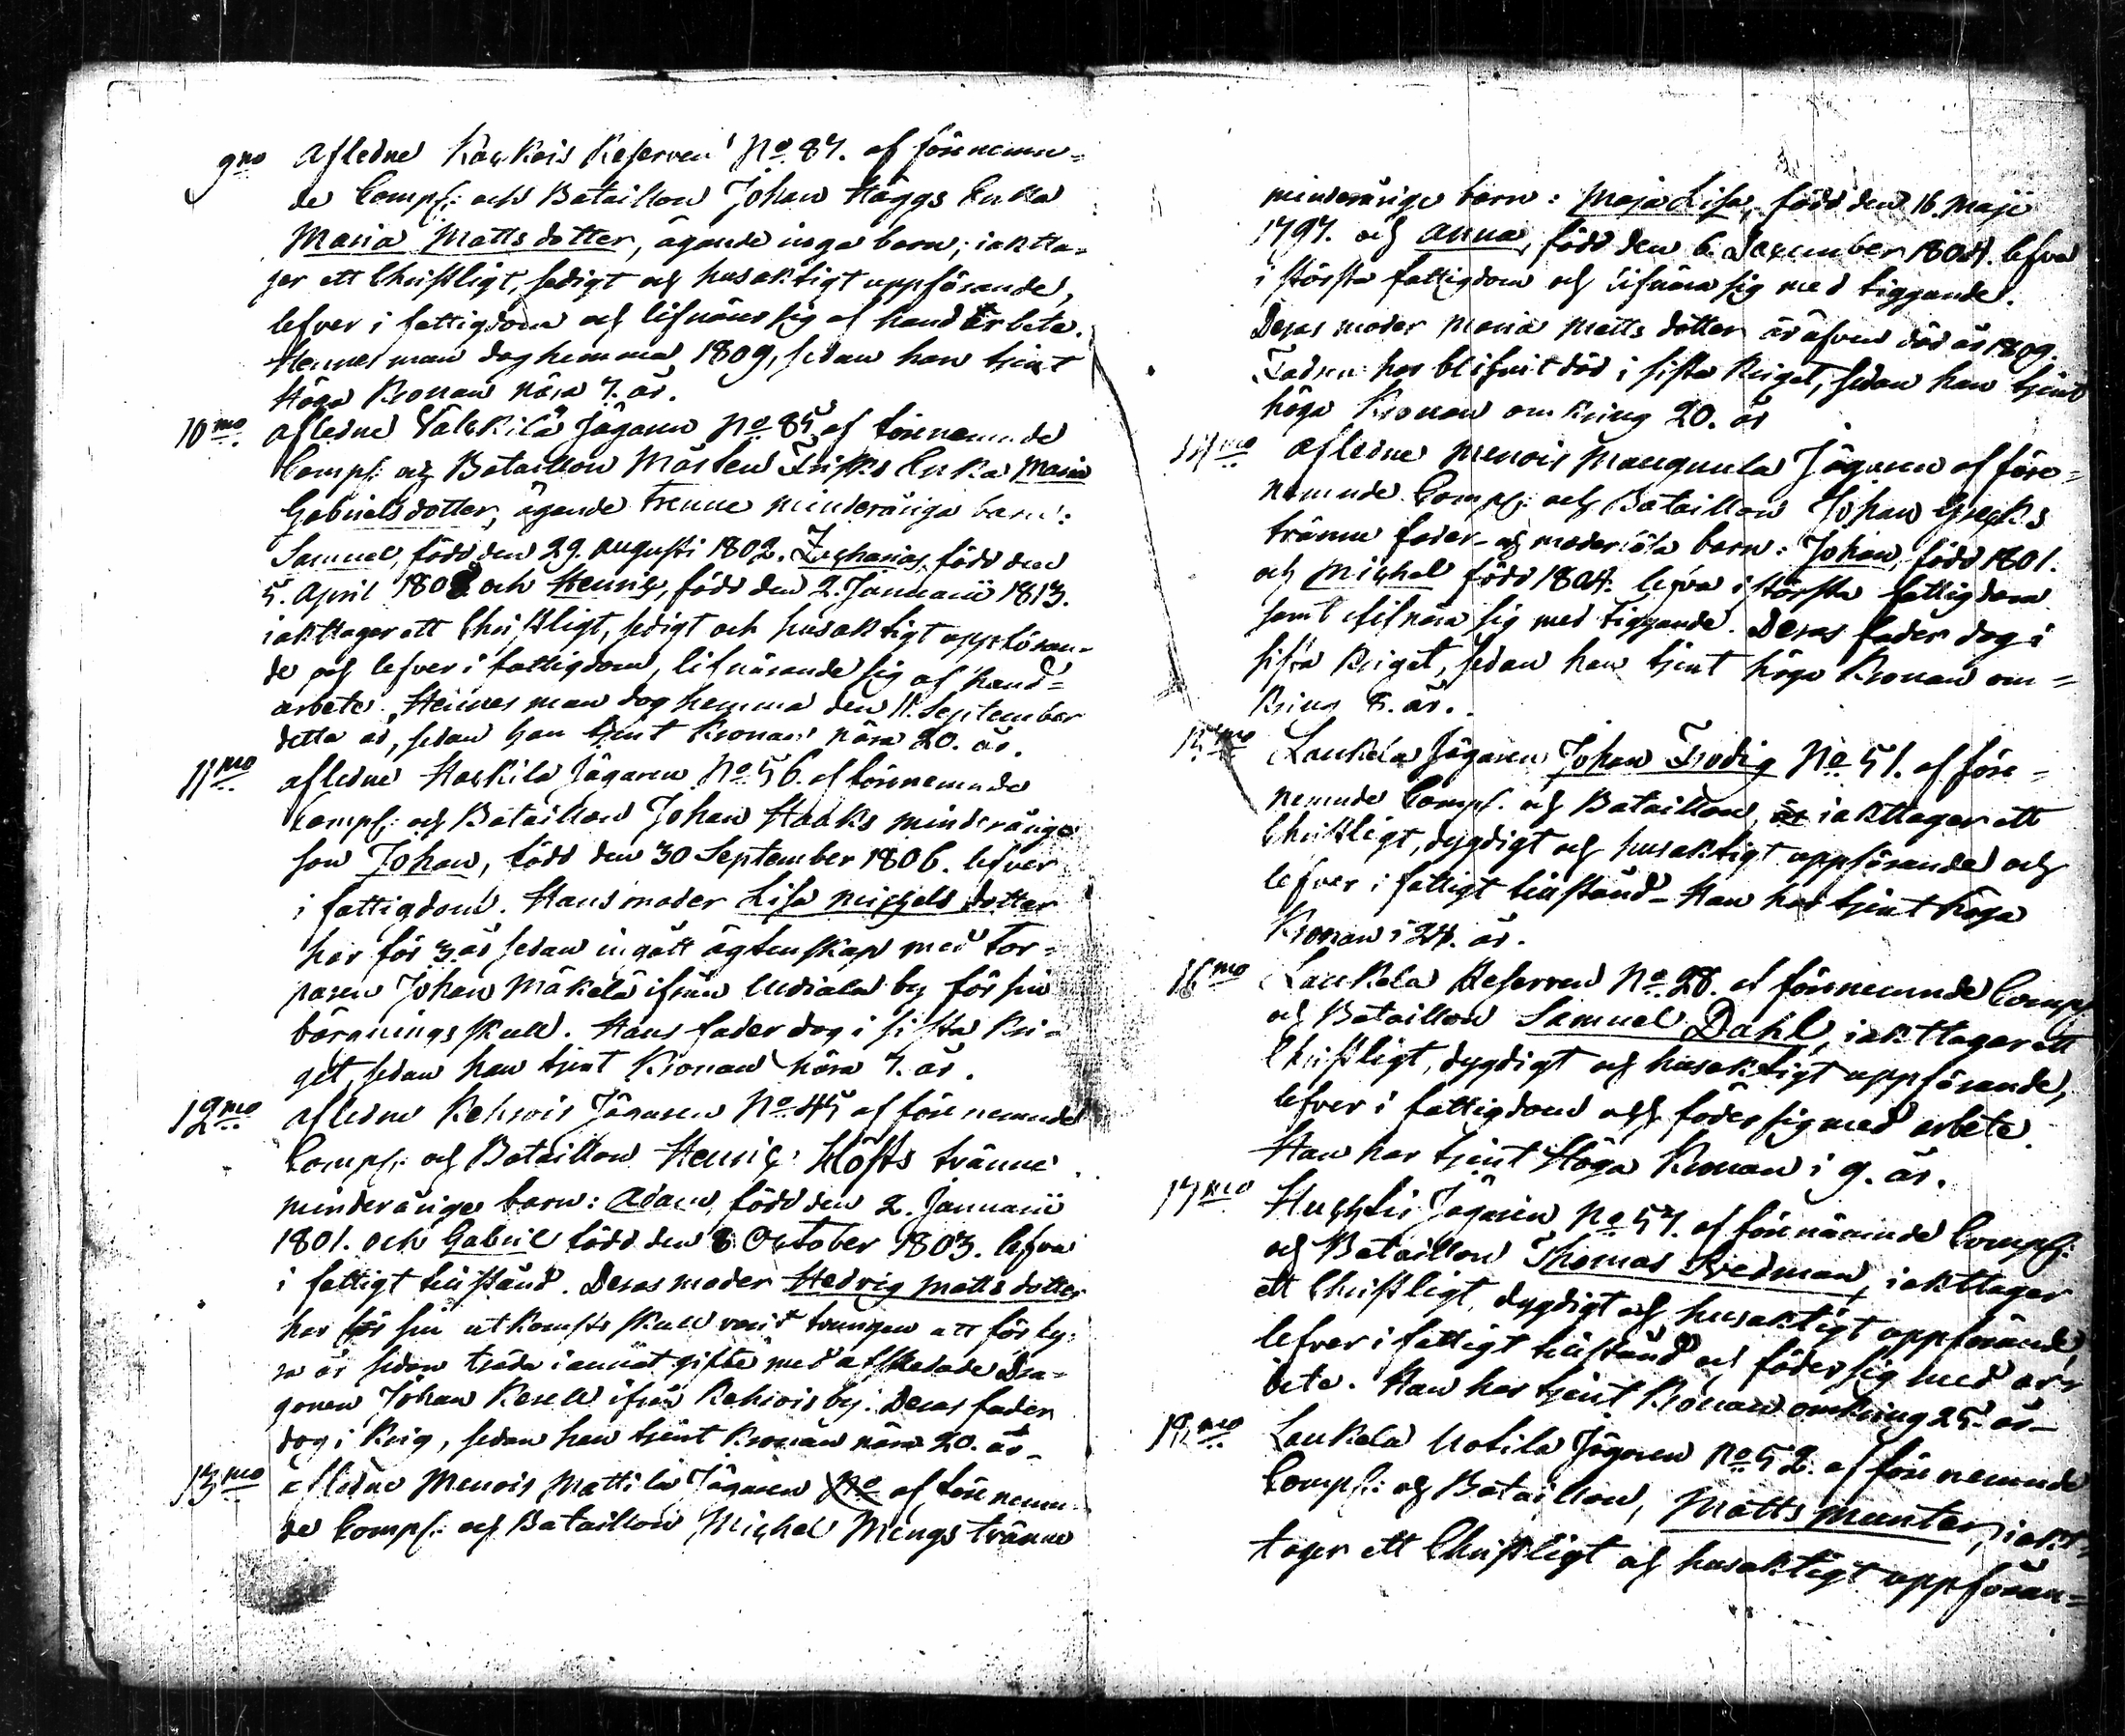 9no Afledne Karkois Reserven No 87. af förenemn=
de Comp: och Bataillon Johan Häggs Enka
Maria Mattsdotter, ägande inga barn; iaktta-
ger ett Christligt, sedigt och husaktigt uppförande,
lefver i fattigdom och lifnärer sig af handarbete.
Hennes man dog hemma 1809, sedan han tjent
Höga Kronan nära 7. år.
10mo. Afledne Välkilä Jägaren No 85 af förenemnde
Comp: och Bataillon Mårten Frisks Enka Maria
Gabrielsdotter, ägande trenne minderåriga barn:
Samuel, född den 29. Augusti 1802. Zacharias, född den
5. April 1808 och Henric, född den 2. Januarii 1813.
iakttager ett Christligt, sedigt och husaktigt uppföran-
de och lefver i fattigdom, lifnärande sig af hand=
arbete. Hennes man dog hemma den 11. September
detta år, sedan han tjent Kronan nära 20. år.
11mo. Afledne Harkila Jägaren No 56. af förenemnde
Comp: och Bataillon Johan Haaks minderårige
son Johan, född den 30 September 1806. lefver
i fattigdom. Hans moder Lisa Michelsdotter
har för 3 år sedan ingått ägtenskap med Tor=
paren Johan Mäkelä ifrån Uudiala by för sin
bärgnings skull. Hans fader dog i sista Kri-
get, sedan han tjent Kronan nära 7. år.
12mo. Afledne Rehtois Jägaren No 45 af förenemnde
Comp: och Bataillon Henric Höfts tvänne
minderåriga barn: Adam, född den 2. Januarii
1801. och Gabriel född den 8 October 1803. lefva
i fattigt tillstånd. Deras moder Hedvig Mattsdotter
har för sin utkomsts skull varit tvungen att för ty-
ra år sedan träda i annat gifte med afskedade Dra-
gonen Johan Resell ifrån Rehtois by. Deras fader
dog i Krig, sedan han tjent Kronan nära 20. år.
13mo. Afledne Menois Mattila Jägaren No af förenemn-
de Comp: och Bataillon Michel Mengs tvänne
minderårige barn: Maja Lisa, född den 16. Maji
1797. och Anna, född den 6. December 1804. lefva
i största fattigdom och lifnära sig med tiggande.
Deras moder Maria Mattsdotter är äfven död år 1809.
Fadren har blifvit död i sista Kriget, sedan han tjent
höga Kronan omkring 20. år
14mo Afledne Menois Maunula Jägaren af före=
nemnde Comp: och Bataillon Johan Specks
tvänne fader- och moderlösa barn: Johan, född 1801.
och Michel född 1804. lefva i största fattigdom
samt lifnära sig med tiggande. Deras fader dog i
sista Kriget, sedan han tjent höga Kronan om=
kring 8. år.
15mo Laukela Jägaren Johan Frodig No 51. af före=
nemnde Comp: och Bataillon, är iakttager ett
Christligt, dygdigt och husaktigt uppförande och
lefver i fattigt tillstånd - Han har tjent höga
Kronan i 24. år.
16mo Laukela Reserven No 28. af förenemnde Comp
och Bataillon Samuel Dahl, iakttager ett
Christligt, dygdigt och husaktigt uppförande,
lefver i fattigdom och föder sig med arbete.
Han har tjent Höga Kronan i 9. år.
17mo Huhtis Jägaren No 57. af förenämnde Comp:
och Bataillon Thomas Svedman, iakttager
ett Christligt, dygdigt och husaktigt uppförande,
lefver i fattigt tillstånd och föder sig med ar-
bete. Han har tjent Kronan omkring 25. år -
18mo. Laukela Uotila Jägaren No 52. af förenemnde
Comp: och Bataillon, Matts Munter, iakt-
tager ett Christligt och husaktigt uppföran=